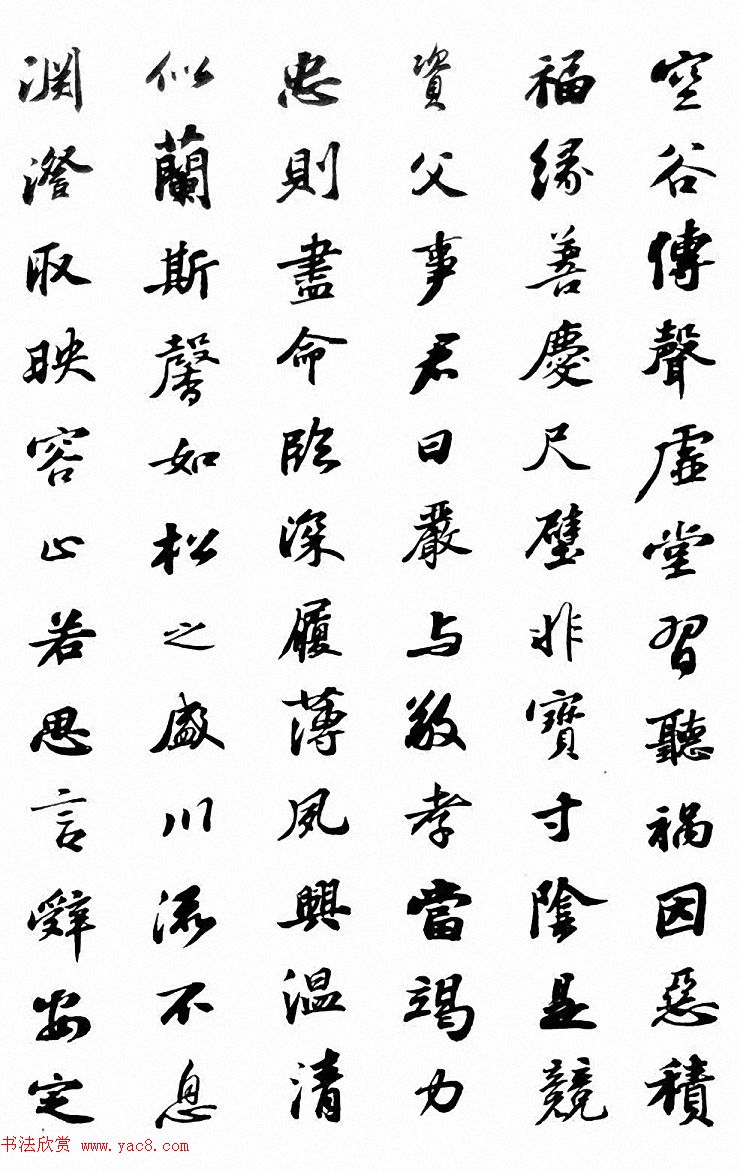 空谷傳聲虛堂習聽禍因惡積
福緣善慶尺璧非寶寸陰是競
資父事君曰嚴与敬孝當竭力
忠則盡命臨深履薄夙興温清
似蘭斯馨如松之盛川流不息
渊澄取映容止若思言辭安定
书法欣赏 www.yac8.com